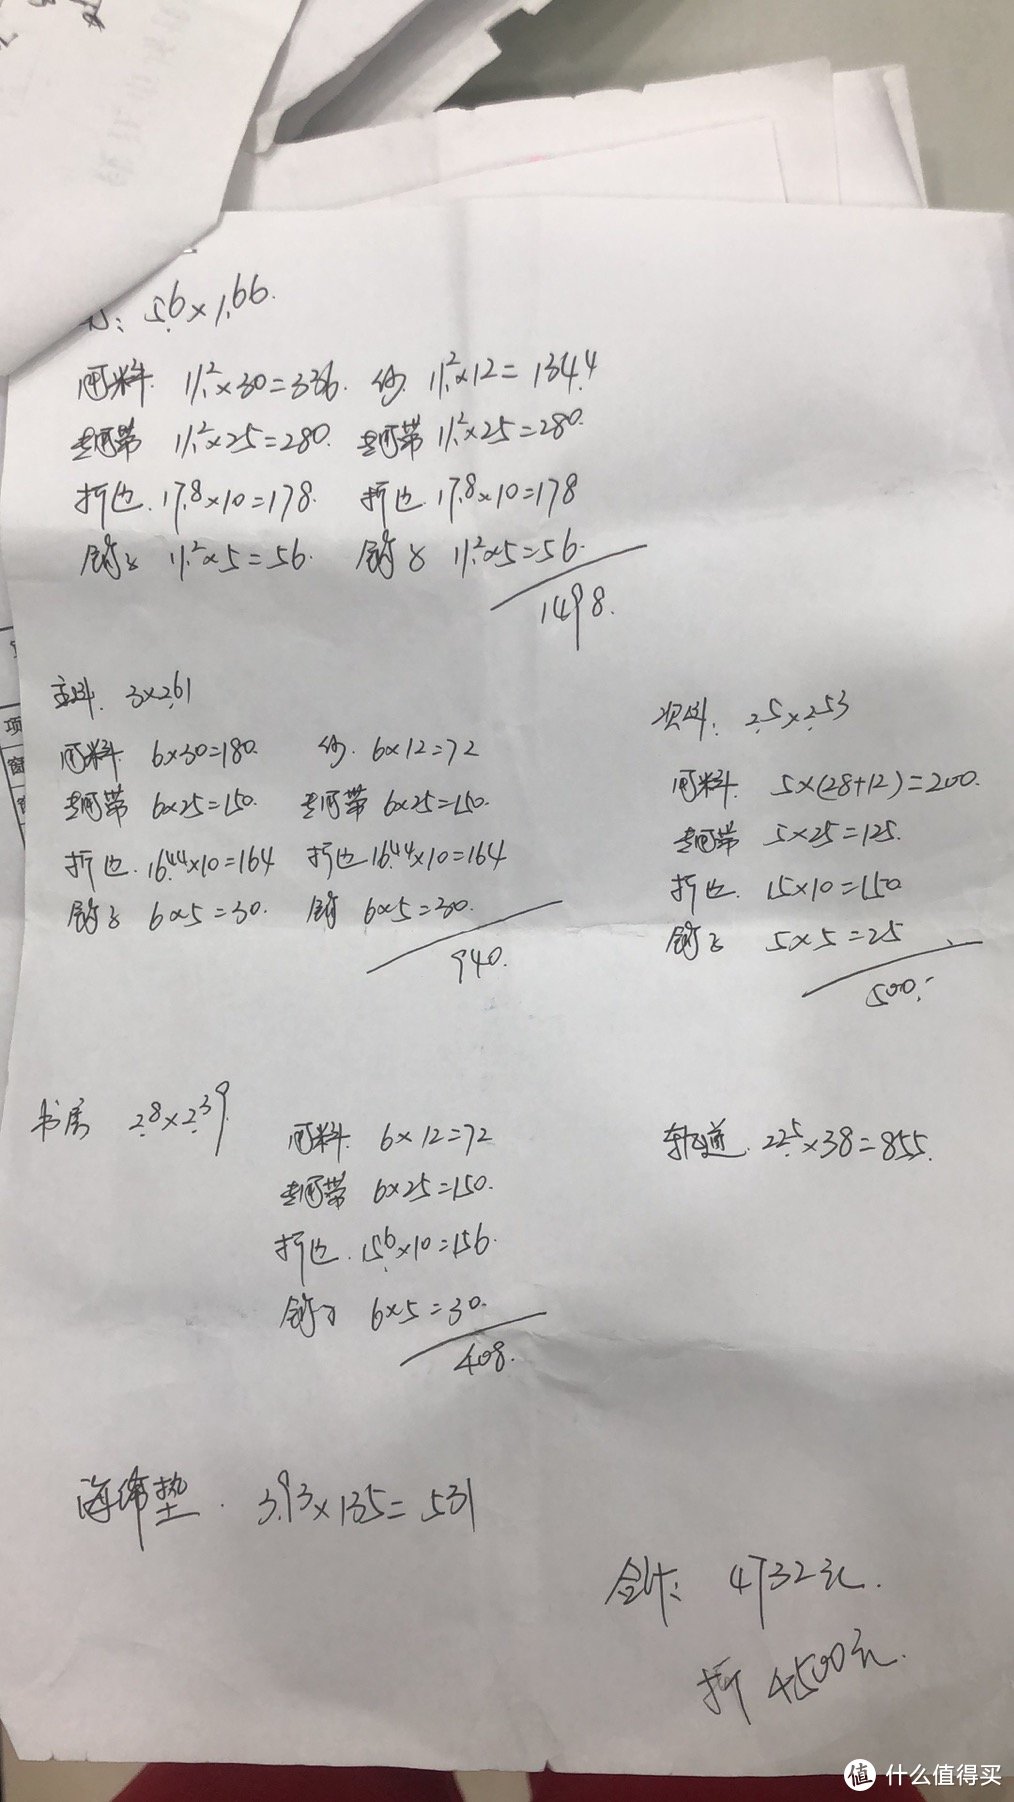 5.6×1.66.
面料. 11.2×30=336. 纱. 11.2×12=134.4
11.2×25=280. 11.2×25=280.
折边. 17.8×10=178. 折边. 17.8×10=178
11.2×5=56. 11.2×5=56.
1498.
主卧. 3×2.61
面料. 6×30=180. 纱. 6×12=72
6×25=150. 6×25=150.
折边. 16.44×10=164 折边 16.44×10=164
6×5=30. 6×5=30.
940.
次卧: 2.5×2.53
面料. 5×(28+12)=200.
5×25=125.
折边. 15×10=150
5×5=25
500.
书房 2.8×2.39
面料. 6×12=72
6×25=150.
折边. 15.6×10=156.
6×5=30.
408.
轨道. 22.5×38=855.
海绵垫. 3.93×135=531
合计: 4732元.
折 4500元.
项
窗
值 什么值得买